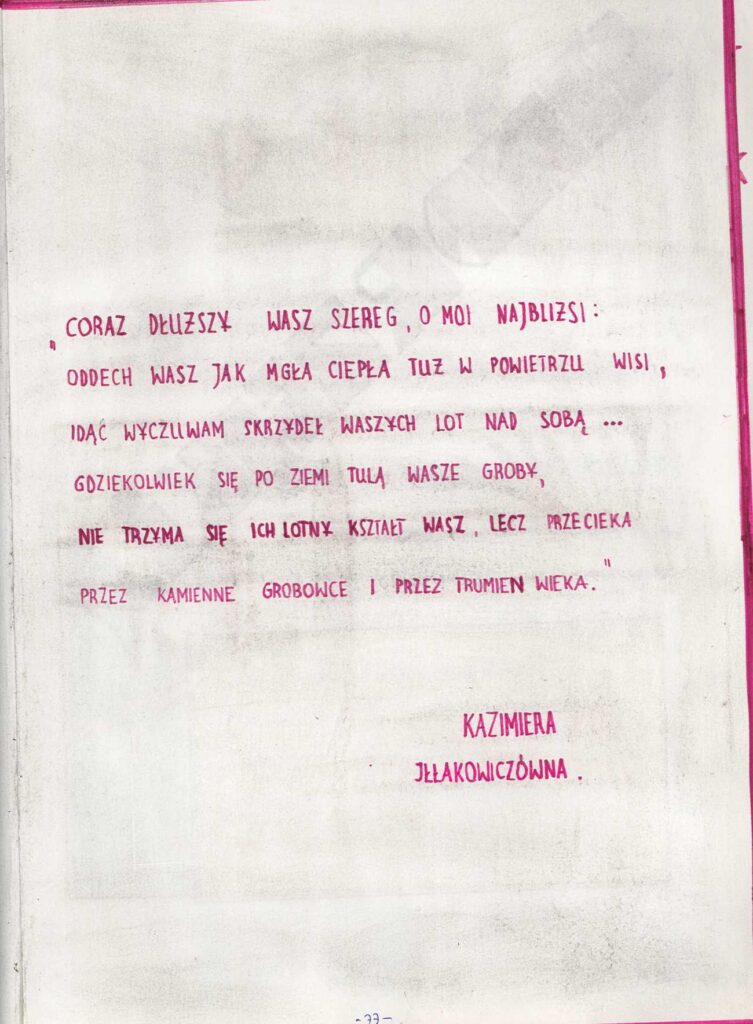 „CORAZ DŁUŻSZY WASZ SZEREG, O MOI NAJBLIŻSI:
ODDECH WASZ JAK MGŁA CIEPŁA TUŻ W POWIETRZU WISI,
IDĄC WYCZUWAM SKRZYDEŁ WASZYCH LOT NAD SOBĄ...
GDZIEKOLWIEK SIĘ PO ZIEMI TULĄ WASZE GROBY,
NIE TRZYMA SIĘ ICH LOTNY KSZTAŁT WASZ, LECZ PRZECIEKA
PRZEZ KAMIENNE GROBOWCE I PRZEZ TRUMIEN WIEKA."
KAZIMIERA
IŁŁAKOWICZÓWNA.
-77-